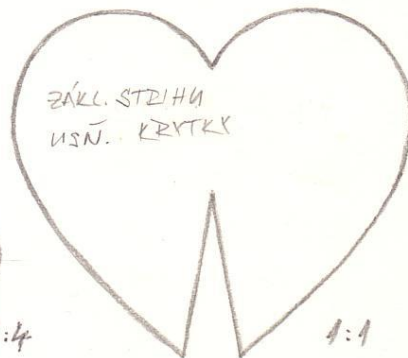 ZÁKL. STRIHU
USŇ. KRYTKY
:4
1:1